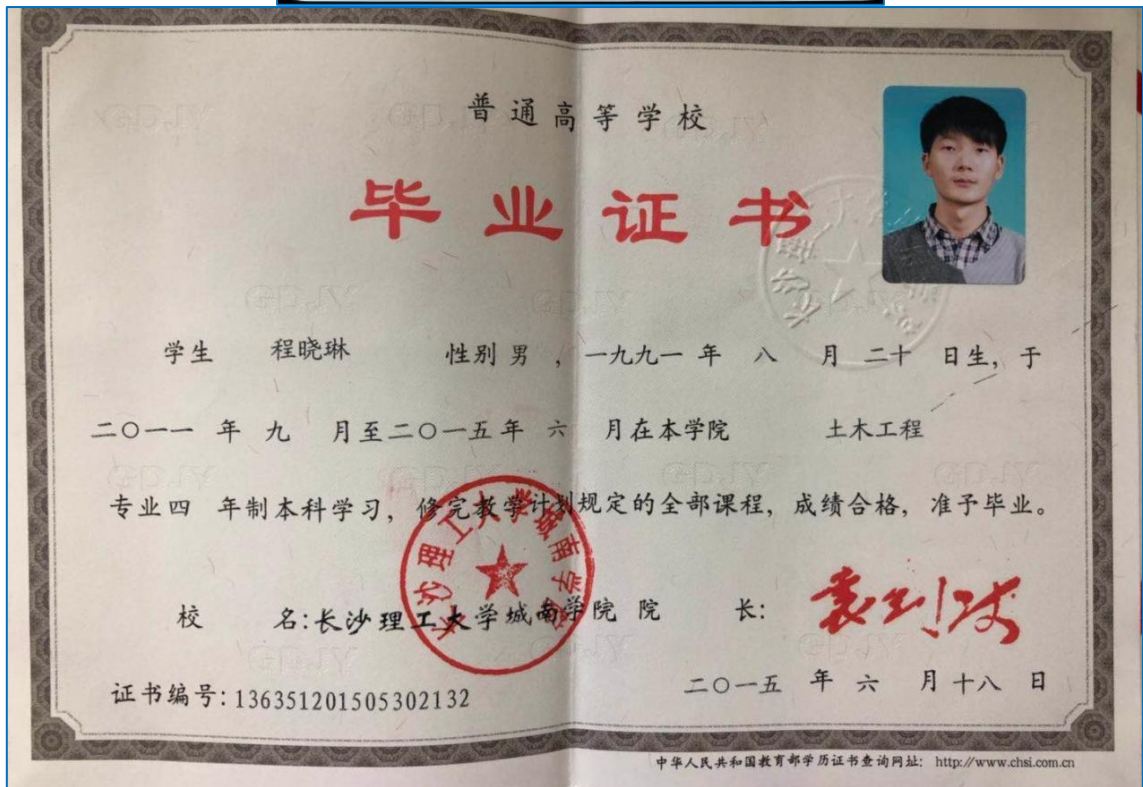 普通高等学校
毕业证书
学生 程晓琳 性别 男 , 一九九一 年 八 月 二十 日生, 于
二〇一一 年 九 月至二〇一五年 六 月在本学院 土木工程
专业四 年制本科学习, 修完教学计划规定的全部课程, 成绩合格, 准予毕业。
长沙理工大学城南学院
校 名:长沙理工大学城南学院 院 长:
二〇一五 年 六 月十八 日
证书编号: 136351201505302132
中华人民共和国教育部学历证书查询网址: http://www.chsi.com.cn